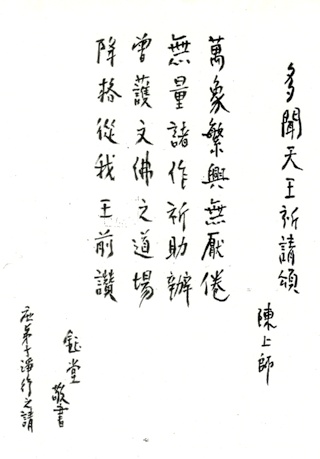 多聞天王祈請頌
陳上師
萬象繁興無厭倦
無量諸作祈助辦
曾護文佛之道場
降格從我王前讚
鈺堂敬書
应弟子淨行之請